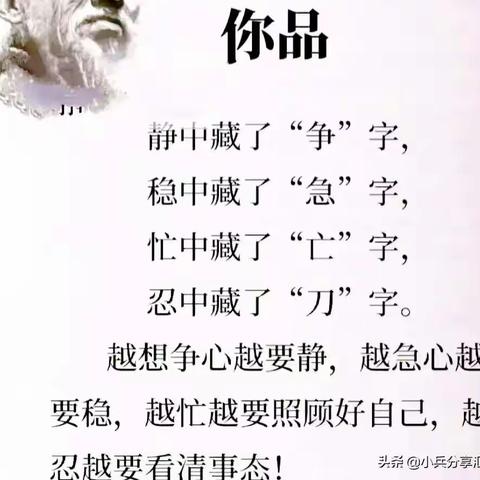 你品
静中藏了“争”字，
稳中藏了“急”字，
忙中藏了“亡”字，
忍中藏了“刀”字。
越想争心越要静，越急心越
要稳，越忙越要照顾好自己，越
忍越要看清事态！
头条 @小兵分享汇